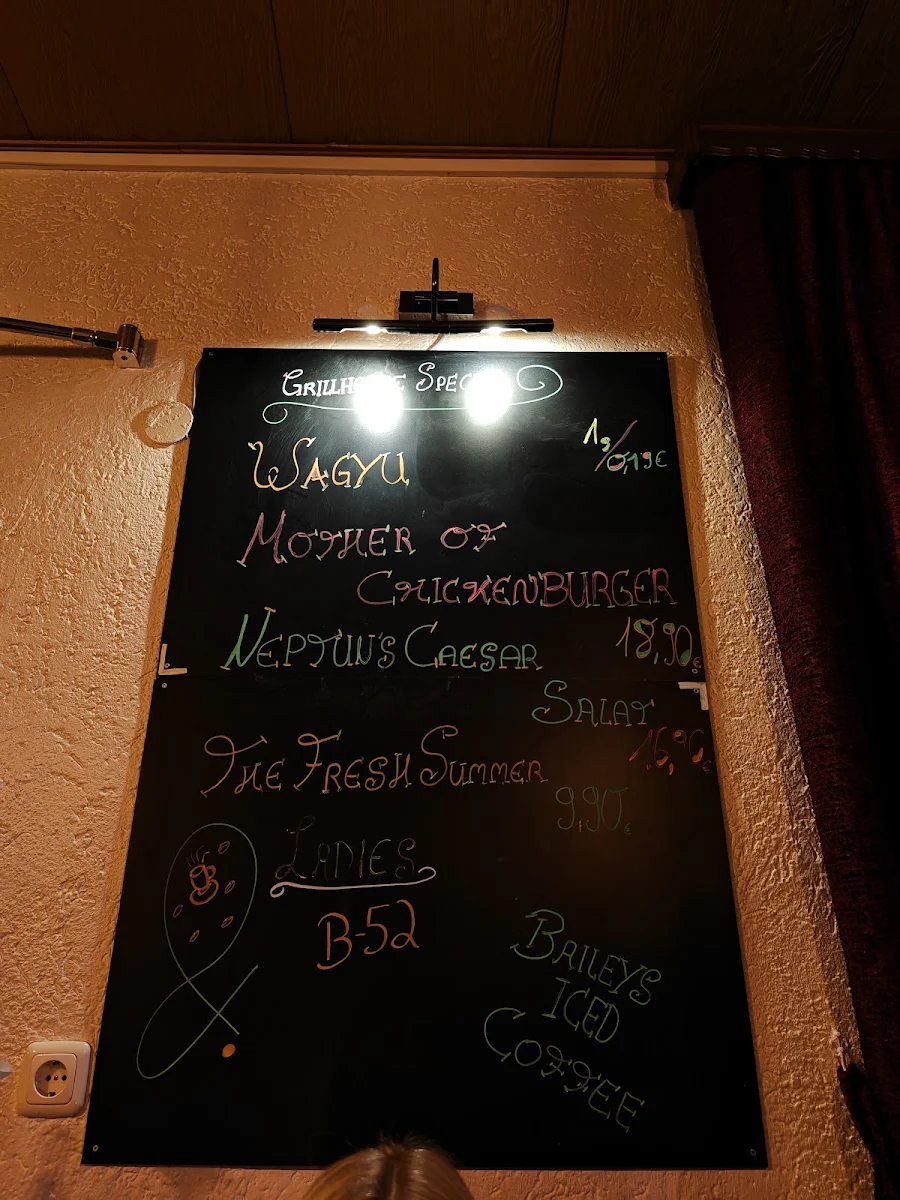 Wagyu 1g/0,19€
Mother of
Chickenburger
Neptun's Caesar 18,90€
Salat
The Fresh Summer 16,90€
9,90€
Ladies
B-52
Baileys
Iced
Coffee